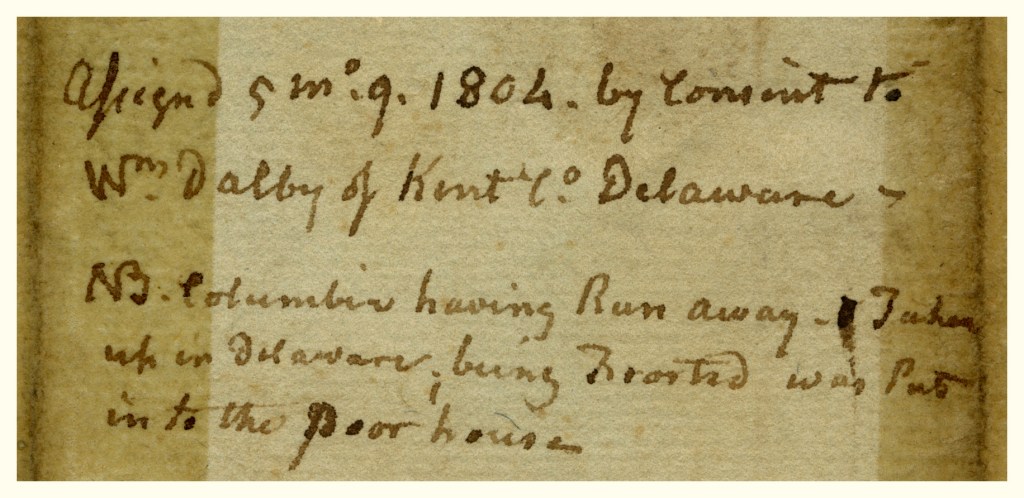 Assigned 5 mo. 9. 1804. by Consent to
Wm. Dalby of Kent Co. Delaware -
NB. Columbia having Run away - & Taken
up in Delaware, being Frosted was Put
in to the Poor house